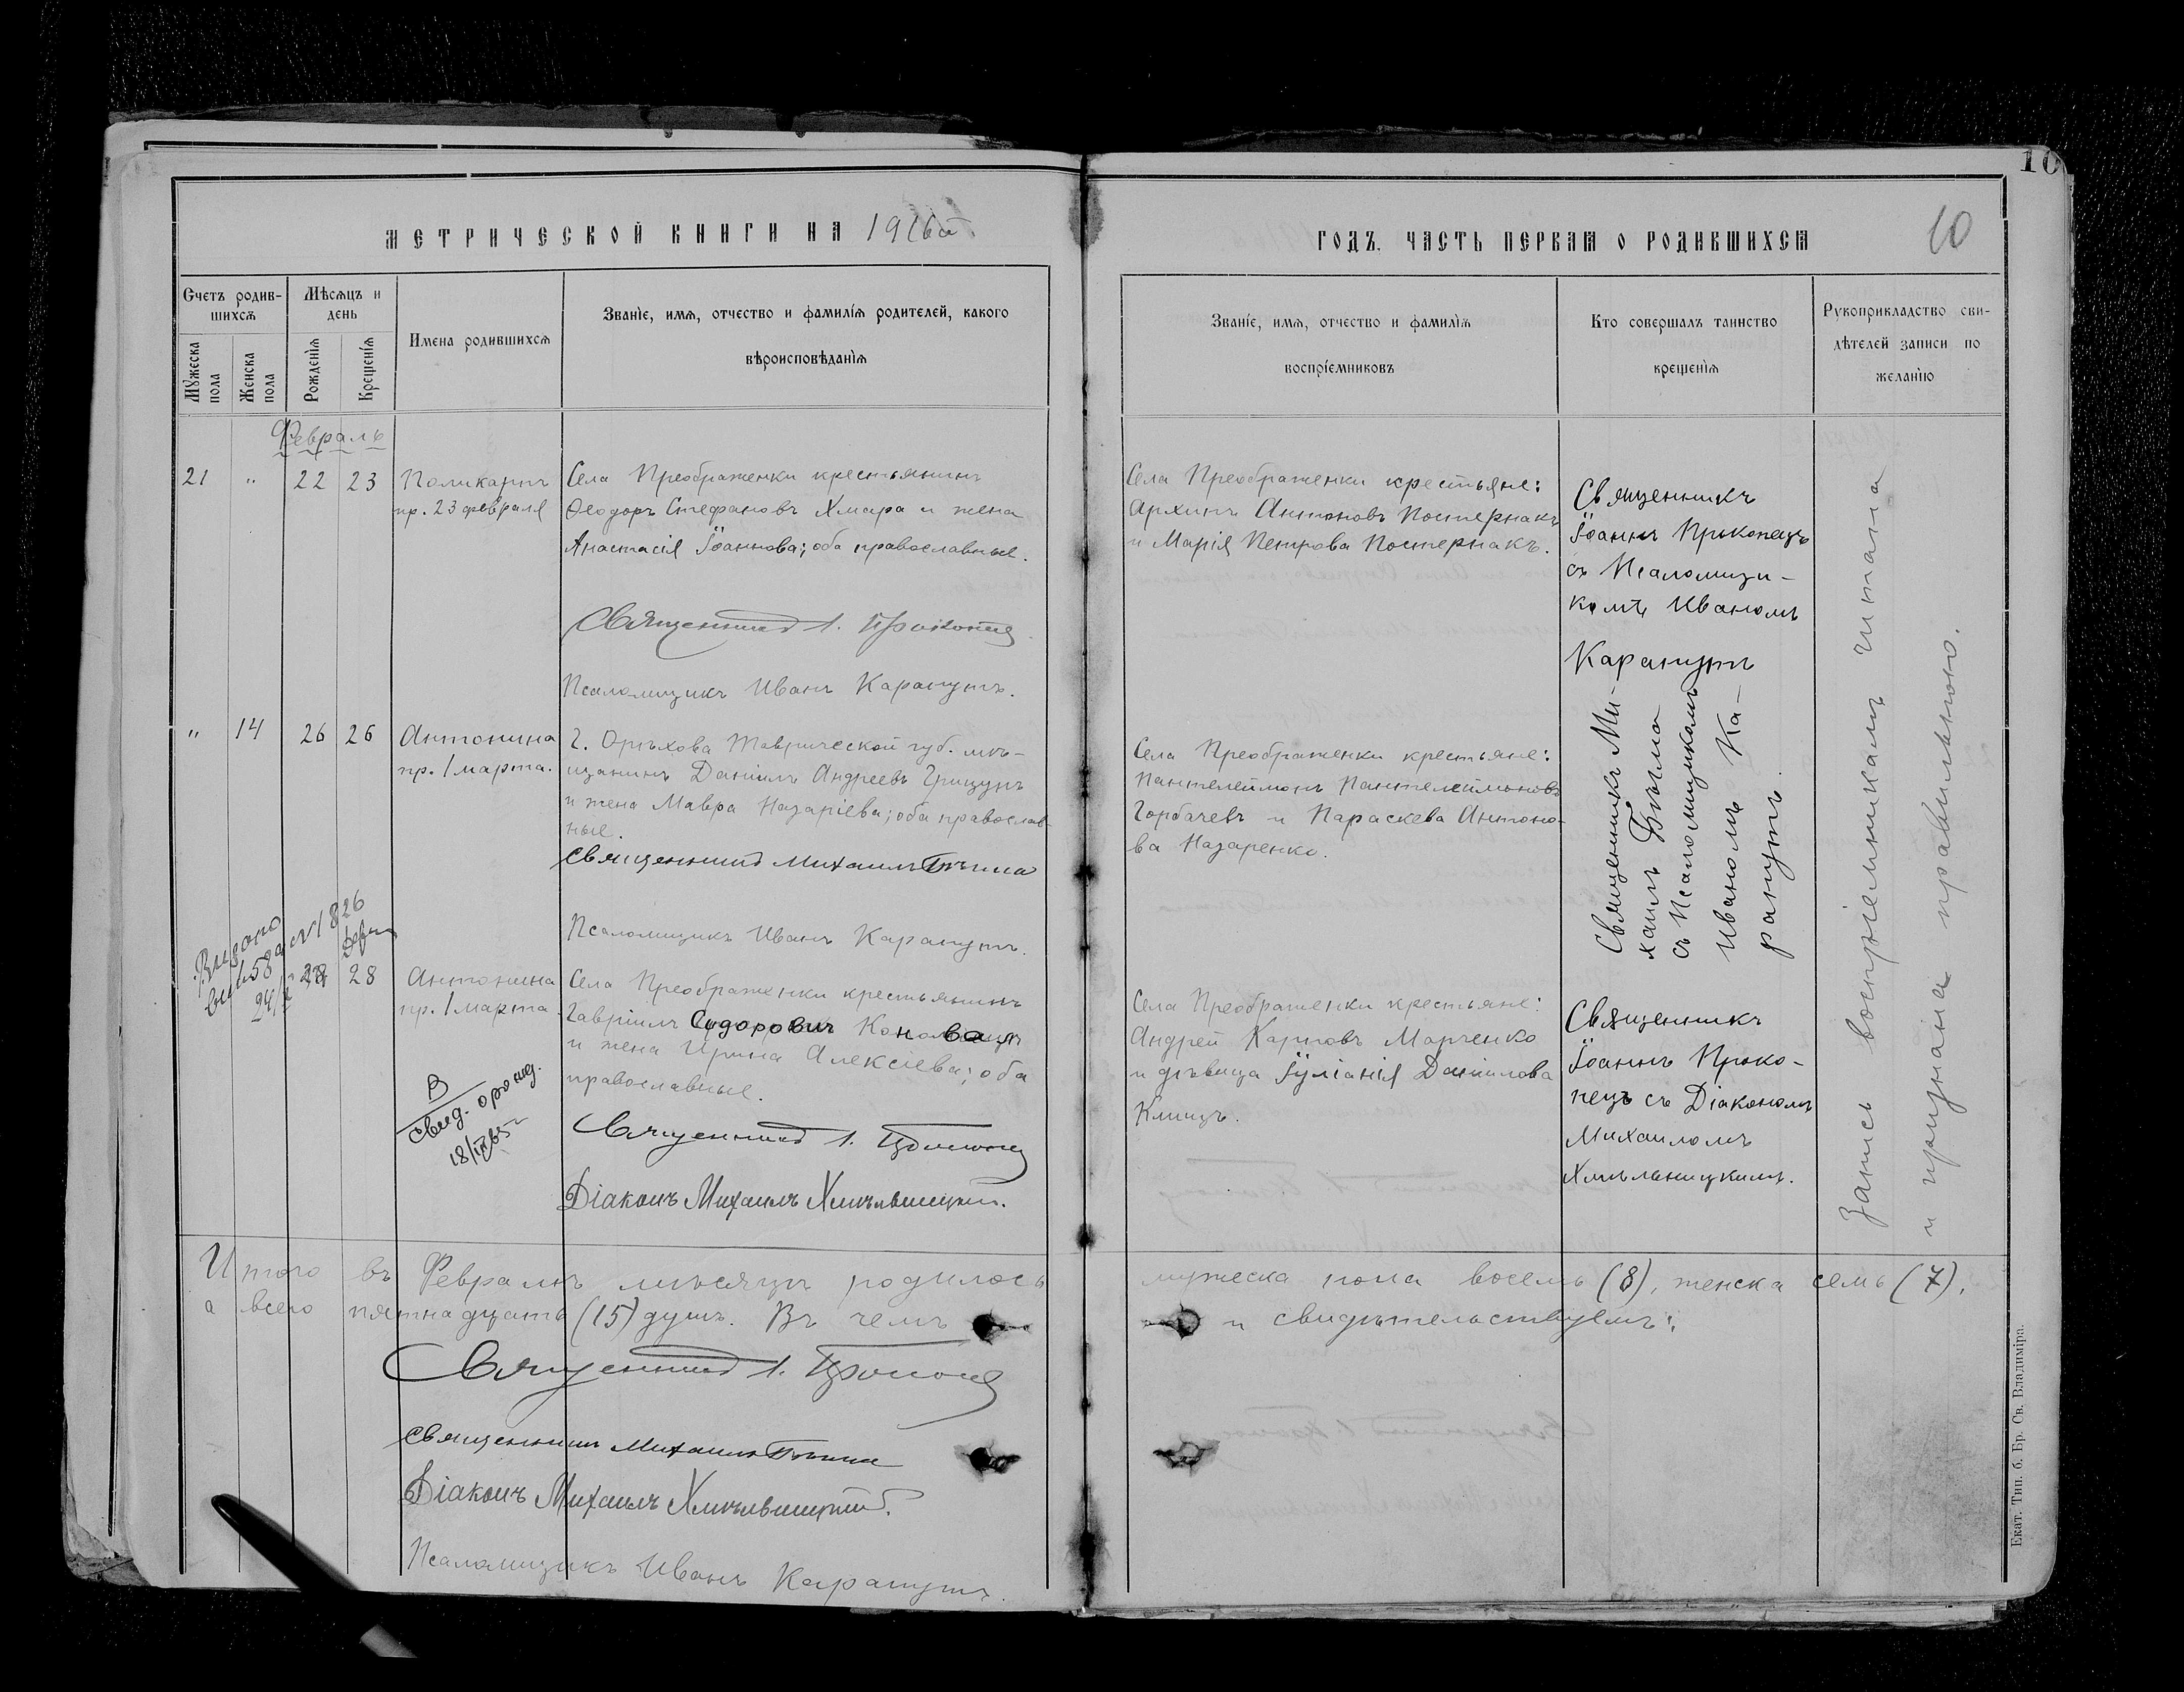 МЕТРИЧЕСКОЙ КНИГИ НА 1916й
Счетъ родив-
шихся
Мужеска
пола
Женска
пола
Мѣсяцъ и
день
Рожденія
Крещенія
Имена родившихся
Званіе, имя, отчество и фамилія родителей, какого
вѣроисповѣданія
Февраль
21 " 22 23
Поликарпъ
пр. 23 февраля
Села Преображенки крестьянинъ
Ѳеодоръ Стефановъ Хмара и жена
Анастасія Іоаннова; оба православные.
Священникъ І. Прокопецъ
Псаломщикъ Иванъ Карапутъ.
" 14 26 26
Антонина
пр. 1 марта.
Г. Орѣхова Таврической губ. мѣ-
щанинъ Даніилъ Андреевъ Грицунъ
и жена Мавра Назаріева; оба православ-
ные.
Священникъ Михаилъ Бѣлма
Псаломщикъ Иванъ Карапутъ.
28 28
Антонина
пр. 1 марта
Села Преображенки крестьянинъ
Гавріилъ Сидорович Коновал
и жена Ирина Алексіева; оба
православные.
В
свид. о рожд.
Священникъ І. Прокопецъ
Діаконъ Михаилъ Хмѣльницкій.
Итого въ Февралѣ мѣсяцѣ родилось
а всего пятнадцать (15) душъ. Въ чемъ
Священникъ І. Прокопецъ
Священникъ Михаилъ Бѣлма
Діаконъ Михаилъ Хмѣльницкій.
Псаломщикъ Иванъ Карапутъ.
10
ГОДЪ. ЧАСТЬ ПЕРВАЯ О РОДИВШИХСЯ
10
Званіе, имя, отчество и фамилія
воспріемниковъ
Кто совершалъ таинство
крещенія
Рукоприкладство сви-
дѣтелей записи по
желанію
Села Преображенки крестьяне:
Архипъ Антоновъ Постернакъ
и Марія Петрова Постернакъ.
Священникъ
Іоаннъ Прокопецъ
съ Псаломщи-
комъ Иваномъ
Карапутъ
Села Преображенки крестьяне:
Пантелеймонъ Пантелеймоновъ
Горбачевъ и Параскева Антоно-
ва Назаренко.
Священникъ Ми-
хаилъ Бѣлма
съ Псаломщикомъ
Иваномъ Ка-
рапутъ.
Села Преображенки крестьяне:
Андрей Карповъ Марченко
и дѣвица Іуліанія Даніилова
Клищъ.
Священникъ
Іоаннъ Проко-
пецъ съ Діакономъ
Михаиломъ
Хмѣльницкимъ.
Запись воспріемникамъ читана
и признана правильною.
мужеска пола восемь (8), женска семь (7),
и свидѣтельствуемъ:
Екат. Тип. б. Бр. Св. Владиміра.